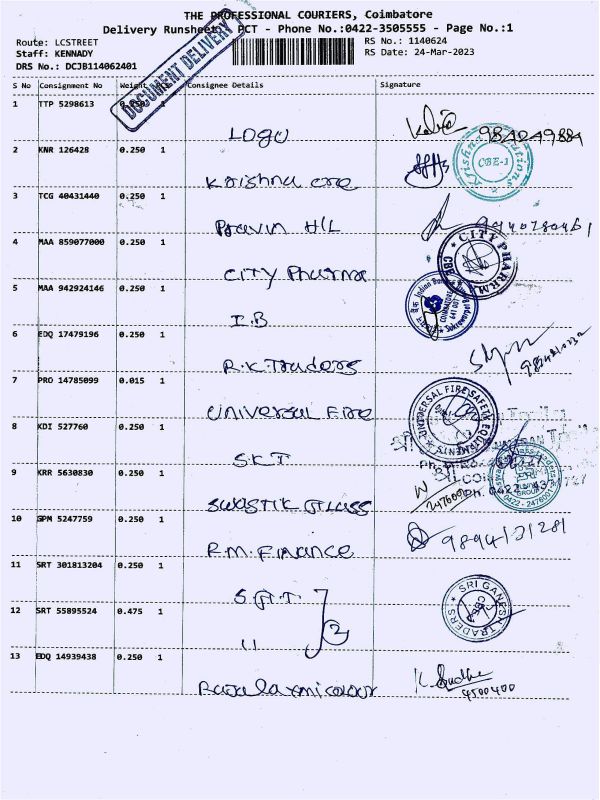 THE PROFESSIONAL COURIERS, Coimbatore
Delivery Runsheet PCT - Phone No.:0422-3505555 - Page No.:1
Route: LCSTREET RS No.: 1140624
Staff: KENNADY RS Date: 24-Mar-2023
DRS No.: DCJB114062401
DOCUMENT DELIVERY
S No Consignment No Weight Consignee Details Signature
1 TTP 5298613 0.250 1 LOGU 984249884
2 KNR 126428 0.250 1 Krishna CBE-1
3 TCG 40431440 0.250 1 Pravin H/L
4 MAA 859077000 0.250 1 CITY Pharma CITY PHARRM
5 MAA 942924146 0.250 1 I.B Indian
6 EDQ 17479196 0.250 1 R.K.Traders
7 PRO 14785099 0.015 1 UNIVERSAL FIRE UNIVERSAL FIRE SAFETY EQUIPMENTS
8 KDI 527760 0.250 1 S.K.T
9 KRR 5630830 0.250 1 SWASTIK GLASS 2476009 GROUP 0422 - 2476001
10 GPM 5247759 0.250 1 R.M. FINANCE
11 SRT 301813204 0.250 1 S.G.T SRI GANESH TRADERS
12 SRT 55895524 0.475 1 " 2
13 EDQ 14939438 0.250 1 Rajalaxmi colour K. Sudha 4500400